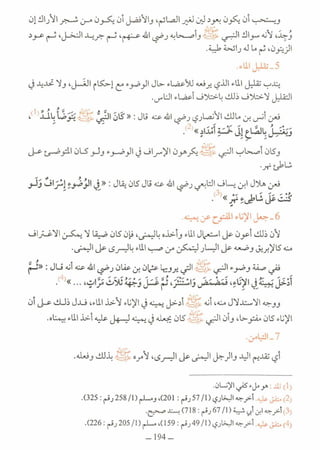 ويستحب أن يكون بعود لين لغير الصائم، والأفضل أن يكون من شجر الأراك إن
وُجِدَ، لأنه سواك النبي ﷺ وأصحابه رضي الله عنهم، ثم جريد النخل، ثم عود
الزيتون، ثم ما له رائحة طيبة.
5 - تقليل الماء.
يندب تقليل الماء الذي يرفعه للأعضاء حال الوضوء من أحكام الغسل، ولا تحديد في
التقليل لاختلاف ذلك باختلاف أعضاء الناس.
فعن أنس بن مالك الأنصاري رضي الله عنه قال: «كَانَ النَّبِيُّ ﷺ يَتَوَضَّأُ بِالْمُدِّ(1)
وَيَغْتَسِلُ بِالصَّاعِ إِلَى خَمْسَةِ أَمْدَادٍ»(2).
وكان أصحاب النبي ﷺ يكرهون الإسراف في الوضوء ولو كان المتوضئ على
شاطئ نهر.
فعن هلال ابن يساف التابعي رضي الله عنه قال: كان يقال: «فِي الْوُضُوءِ إِسْرَافٌ وَلَوْ
كُنْتَ عَلَى شَاطِئِ نَهْرٍ»(3).
6 - جعل الإناء المفتوح عن يمينه.
لأن ذلك أعون على استعمال الماء وأخذه باليمنى، فإن كان ضيقا لا يمكن الاغتراف
منه كالإبريق وضعه على اليسار ليتمكن من صب الماء باليسرى على اليمنى.
ففي صفة وضوء النبي ﷺ التي يرويها عثمان بن عفان رضي الله عنه أنه قال: «ثُمَّ
أَدْخَلَ يَمِينَهُ فِي الْإِنَاءِ، فَمَضْمَضَ وَاسْتَنْثَرَ، ثُمَّ غَسَلَ وَجْهَهُ ثَلَاثَ مَرَّاتٍ، ...»(4).
ووجه الاستدلال منه، أنه ﷺ أدخل يمينه في الإناء لأخذ الماء، فدل ذلك على أن
الإناء كان مفتوحا، وأن النبي ﷺ جعله عن يمينه ليسهل عليه أخذ الماء بيمناه.
7 - التيامن.
أي تقديم اليد والرجل اليمنى على اليسرى، لأمره ﷺ بذلك وفعله.
(1) المد : هو ملء كفي الإنسان.
(2) متفق عليه. أخرجه البخاري (1/ 57 رقم: 201)، ومسلم (1/ 258 رقم: 325).
(3) أخرجه ابن أبي شيبة (1/ 67 رقم: 718) بسند صحيح.
(4) متفق عليه. أخرجه البخاري (1/ 49 رقم: 159)، ومسلم (1/ 205 رقم: 226).
- 194 -